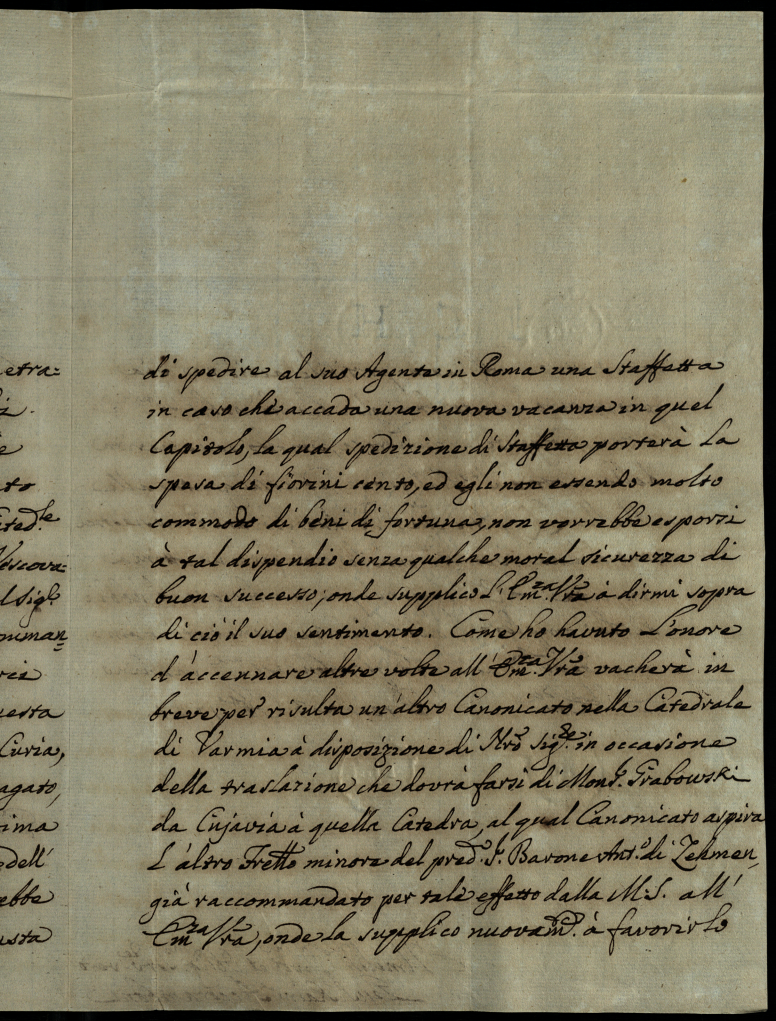 etra=
iz.
e
nto
tred.le
Vescova=
l Sig.r
mman=
rci
uesta
Curia,
agato,
ima
dell'
ebbe
usta
di spedire al suo Agente in Roma una Staffetta
in caso che accada una nuova vacanza in quel
Capitolo, la qual spedizione di Staffetta porterà la
spesa di fiorini cento, ed egli non essendo molto
commodo di beni di fortuna, non vorrebbe esporsi
à tal dispendio senza qualche moral sicurezza di
buon successo; onde supplico l'Em.za Vra à dirmi sopra
di ciò il suo sentimento. Come ho havuto l'onore
d'accennare altre volte all'Em.za Vra vacherà in
breve per risulta un'altro Canonicato nella Catedrale
di Varmia à disposizione di Nro Sig.re in occasione
della traslazione che dovrà farsi di Mons.r Grabowski
da Cujavia à quella Catedra, al qual Canonicato aspira
l'altro Fretto minore del pred.o S.r Barone Ant.o di Zehmen,
già raccommandato per tale effetto dalla M.S. all'
Em.za Vra, onde la supplico nuovam.te à favorirlo